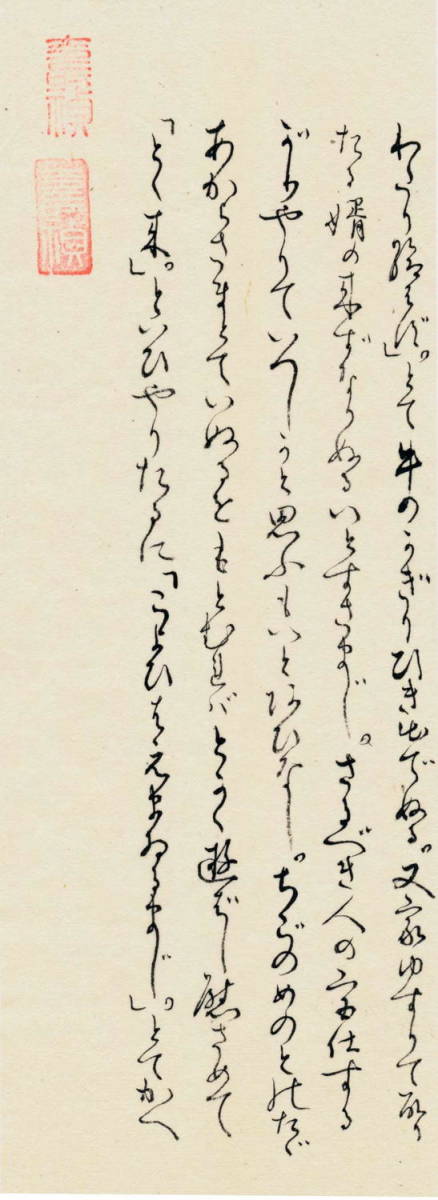 わたり給はず」。とて牛のかぎり引き出でぬる。又家ゆすりて取り
たる婿の来ずなりぬるいとすさまじ。さるべき人の宮仕する
がりやりていつしかと思ふもいとあひなし。ちごのめのとのたゞ
あからさまとていぬるをもとむればとかく遊ばし慰さめて
「とく来」。といひやりたるに「こよひはえまゐるまじ」。とてかへ